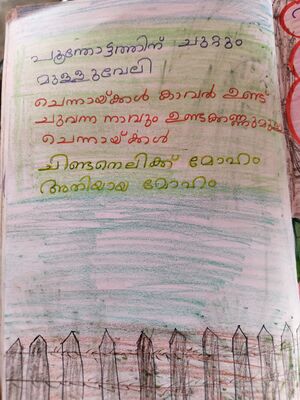 പൂന്തോട്ടത്തിന് ചുറ്റും
മുള്ളുവേലി
ചെന്നായ്ക്കൾ കാവൽ ഉണ്ട്
ചുവന്ന നാവും ഉണ്ടക്കണ്ണുമുള്ള
ചെന്നായ്ക്കൾ
ചിണ്ടനെലിക്ക് മോഹം
അതിയായ മോഹം